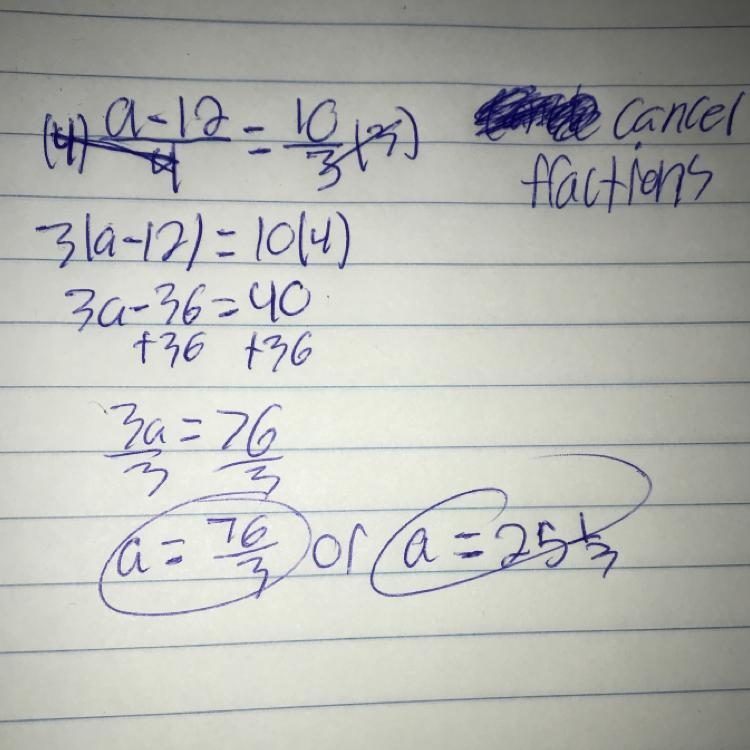 (4) a-12/4 = 10/3 (3)
cancel
fractions
3(a-12) = 10(4)
3a-36=40
+36 +36
3a/3 = 76/3
a = 76/3 or a = 25 1/3